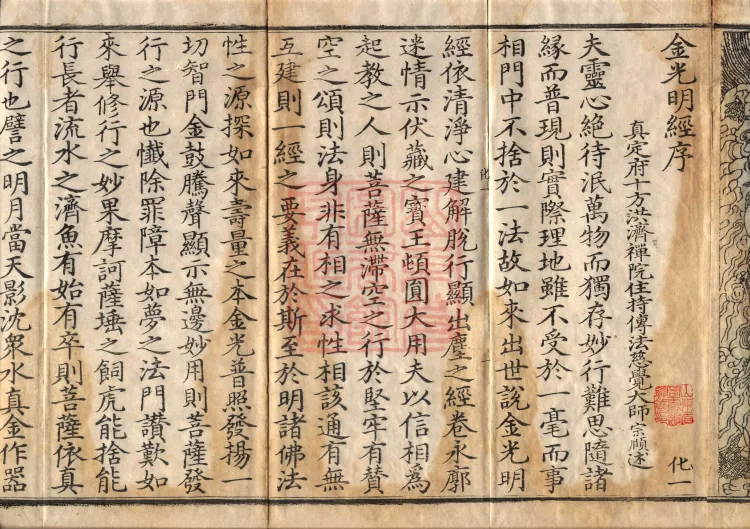 金光明經序
真定府十方洪濟禪院住持傳法慈覺大師宗頤述
化一
夫靈心絶待泯萬物而獨存妙行難思隨諸
緣而普現則實際理地雖不受於一毫而事
相門中不捨於一法故如來出世說金光明
經依清淨心建解脫行顯出塵之經卷永廓
化一
迷情示伏藏之寶王頓圓大用夫以信相爲
起教之人則菩薩無滯空之行於堅牢有贊
空之頌則法身非有相之求性相該通有無
互建則一經之要義在於斯至於明諸佛法
性之源探如來壽量之本金光普照發揚一
切智門金鼓騰聲顯示無邊妙用則菩薩發
行之源也懺除罪障本如夢之法門讚歎如
來舉修行之妙果摩訶薩埵之飼虎能捨能
行長者流水之濟魚有始有卒則菩薩依真
之行也譬之明月當天影沈衆水真金作器